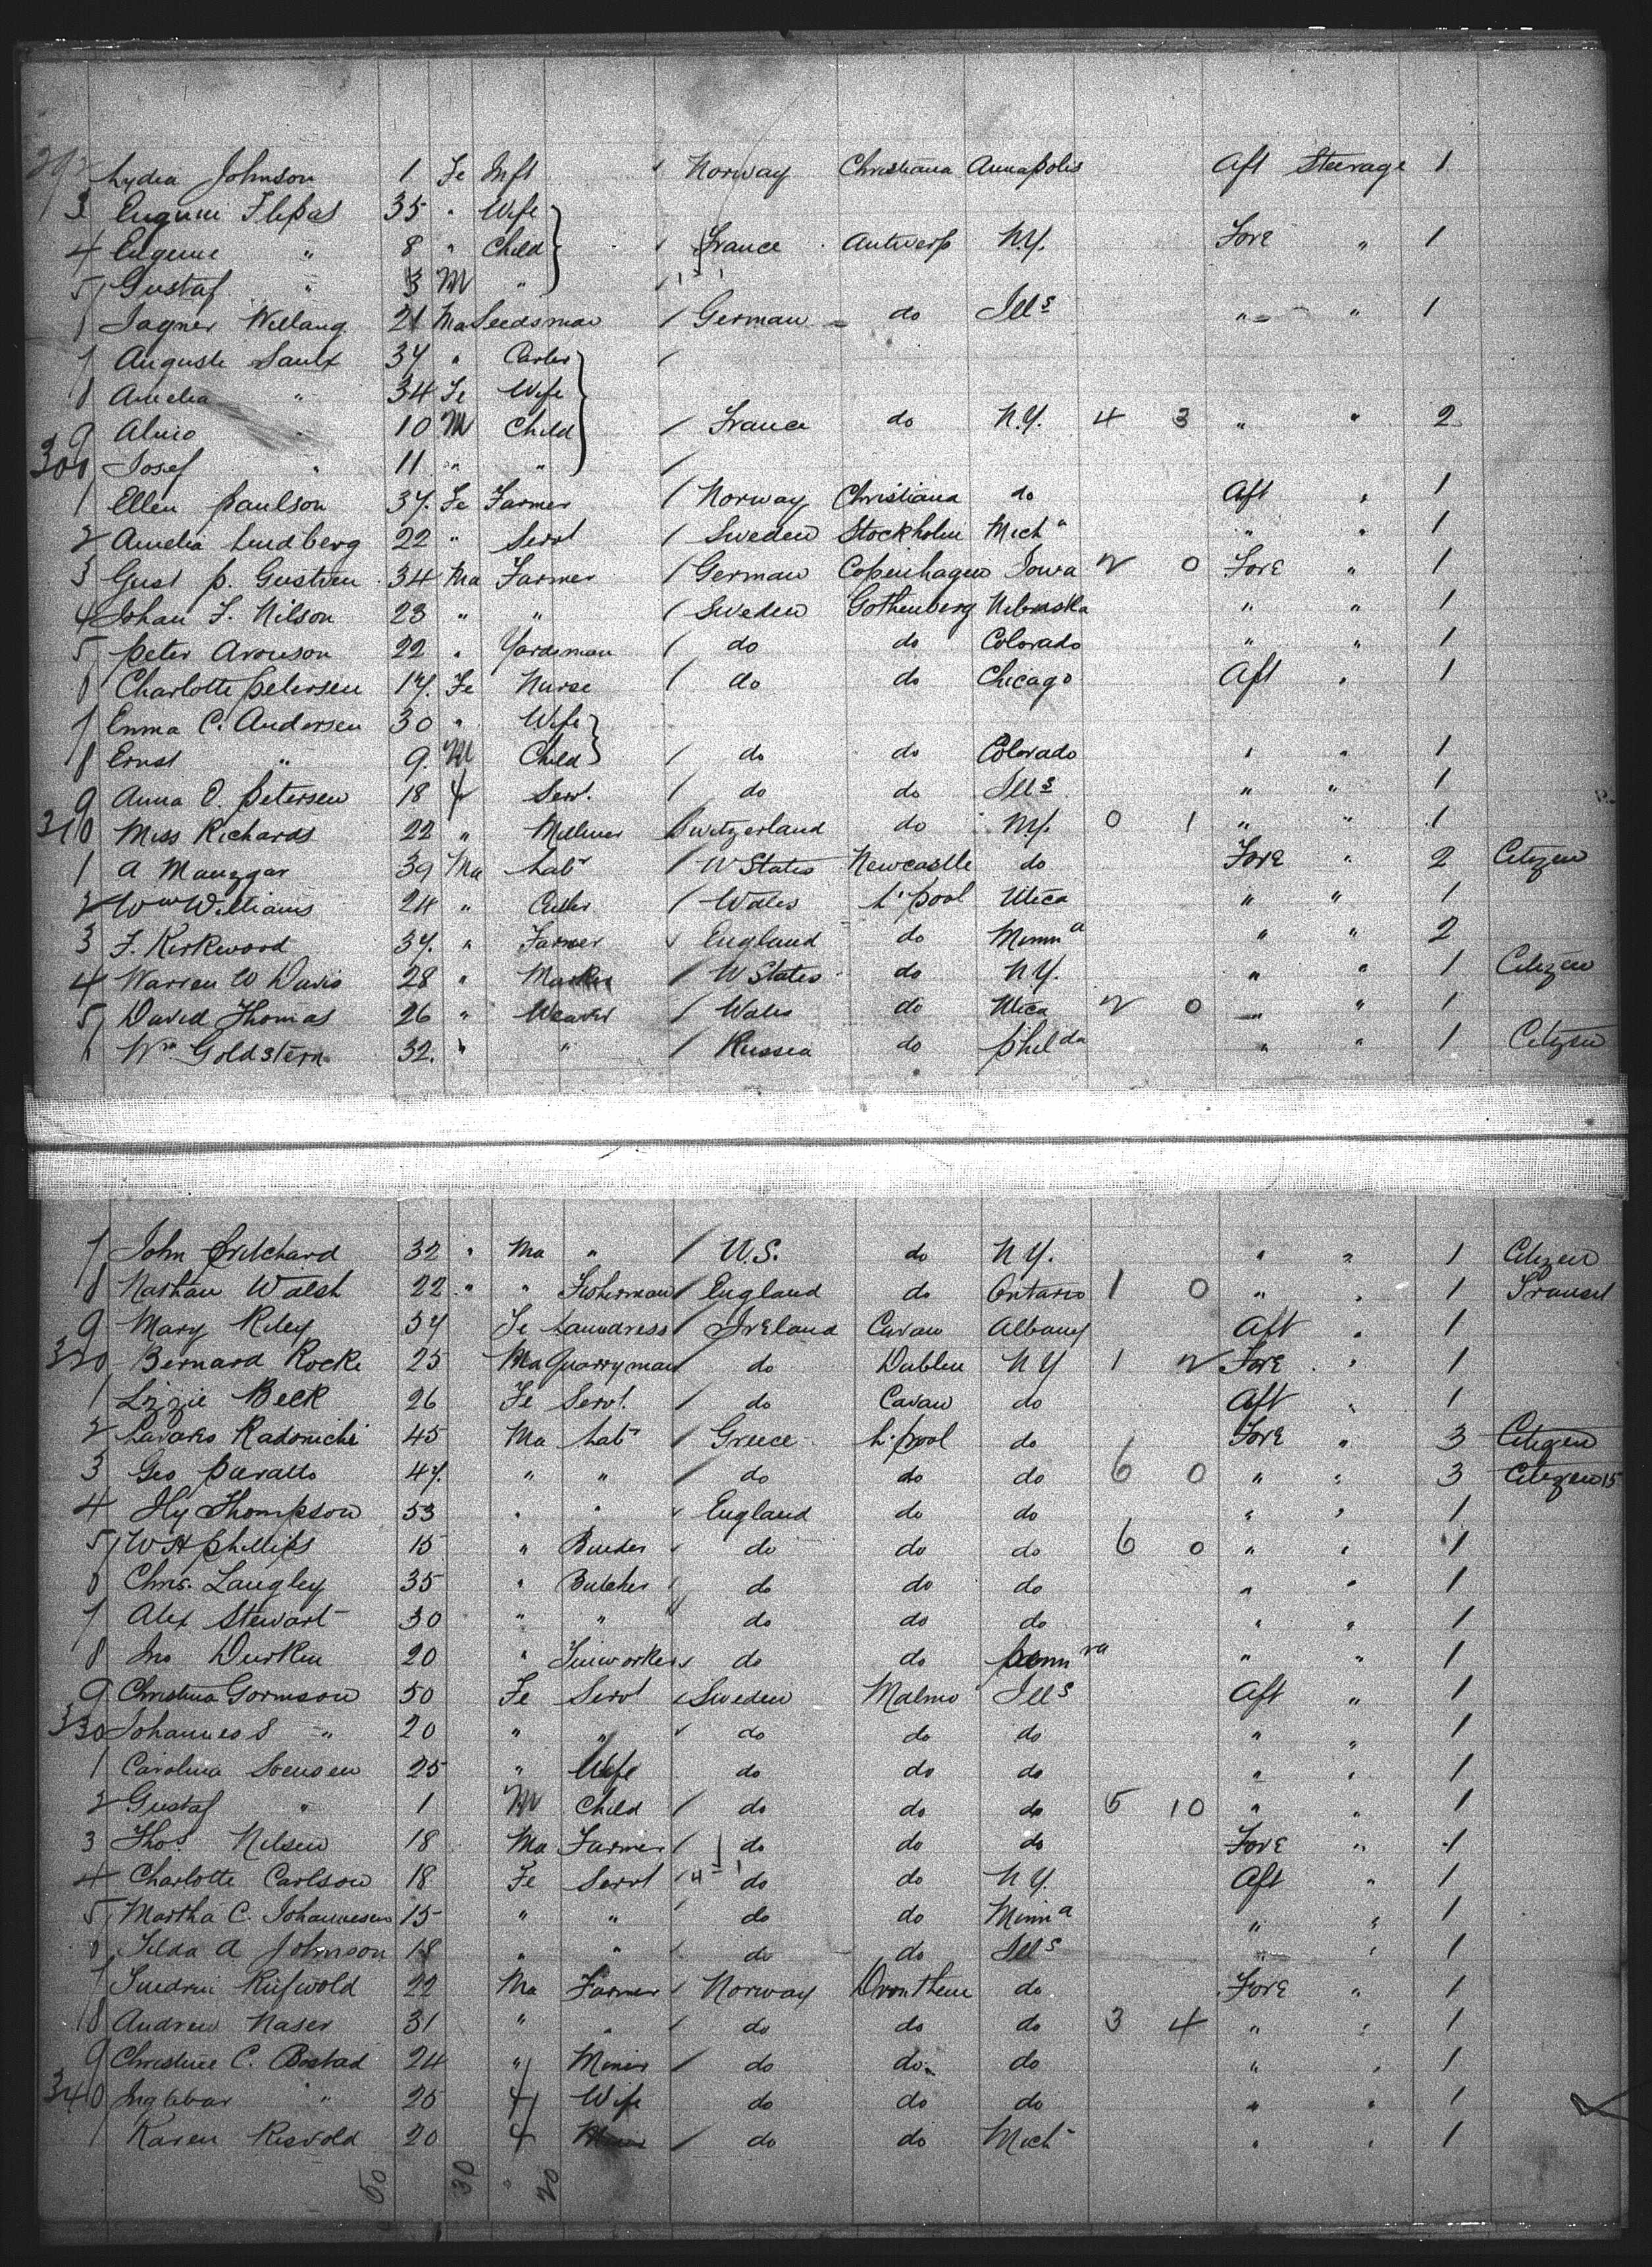 292 Lydia Johnson 1 Fe Inft / Norway Christiana Annapolis Aft Steerage 1
3 35 " Wife
4 Eugenie " 8 " Child France Antwerp N.Y. Fore " 1
5 Gustaf " 3 M "
21 Ma Seedsman / German do Ills " " 1
7 Auguste 37 " /
8 Amelia " 34 Fe Wife
9 " 10 M Child / France do N.Y. 4 3 " " 2
300 Josef " 11 " " /
1 Ellen Paulson 37. Fe Farmer / Norway Christiana do Aft " 1
2 Amelia Lindberg 22 " Servt / Sweden Stockholm Mich " " " 1
3 Gust P. 34 Ma Farmer / German Copenhagen Iowa 2 0 Fore " 1
4 Johan F. Nilson 23 " " / Sweden Gothenberg Nebraska " " 1
5 Peter Aronson 22 " Yardsman / do do Colorado " " 1
6 Charlotte Petersen 17. Fe Nurse / do do Chicago Aft " 1
7 Emma C. Andersen 30 " Wife
8 Ernst " 9. M Child / do do Colorado " " 1
9 Anna O. Petersen 18 f Serv. / do do Ills " " 1
310 Miss Richards 22 " Milliner Switzerland do N.Y. 0 1 " " 1
1 A 39 Ma Labr / U States Newcastle do Fore " 2 Citizen
2 Wm Williams 24 " / Wales L'pool Utica " " 1
3 F. Kirkwood 37. " Farmer England do Minna " " 2
4 Warren W Davis 28 " / U States do N.Y. " " 1 Citizen
5 David Thomas 26 " Weaver / Wales do Utica 2 0 " " 1
6 Wm Goldstern 32. " " / Russia do Philda " " 1 Citizen
7 John Pritchard 32 " Ma " / U.S. do N.Y. " " 1 Citizen
8 Nathan Walsh 22 " " Fisherman / England do Ontario 1 0 " " 1 Transit
9 Mary Riley 37 Fe Laundress / Ireland Cavan Albany Aft " 1
320 Bernard Rocke 25 Ma Quarryman / do Dublin NY 1 2 Fore " 1
1 Lizzie Beck 26 Fe Servt. / do Cavan do Aft " 1
2 Radonichi 45 Ma Labr / Greece L'pool do Fore " 3 Citizen
3 Geo 47. " " / do do do 6 0 " " 3 Citizen 15
4 Hy Thompson 53 " " England do do " " 1
5 W H Phillips 15 " do do do 6 0 " " 1
6 Chris. Langley 35 " Butcher do do do " " 1
7 Alex Stewart 30 " " do do do " " 1
8 Jno Durkin 20 " Tinworker do do Pennva " " 1
9 Christina Gormson 50 Fe Servt Sweden Malmo Ills Aft " 1
330 Johannes S " 20 " " do do do " " 1
1 Carolina Svensen 25 " Wife do do do " " 1
2 Gustaf " 1 M Child / do do do 5 10 " " 1
3 Thos. Nilsen 18 Ma Farmer / do do do Fore " 1
4 Charlotte Carlson 18 Fe Servt do do N.Y. Aft " 1
5 Martha C. Johannesen 15 " " do do Minna " " 1
6 Tilda A Johnson 18 " " do do Ills " " 1
7 22 Ma Farmer Norway Drontheim do Fore " 1
8 Andrew Naser 31 " " / do do do 3 4 " " 1
9 Christine C. Bostad 24 " Miner / do do do " " 1
340 Inglebar " 25 f Wife do do do " " 1
1 Karen Risvold 20 f / do do Mich " " 1
50 30 " 20